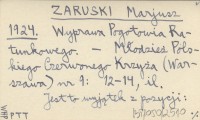 ZARUSKI Marjusz
1924. Wyprawa Pogotowia Ra-
tunkowego. — Młodzież Pols-
kiego Czerwonego Krzyża (War-
szawa) nr 9: 12-14, il.
Jest to wyjątek z pozycji:
PTT